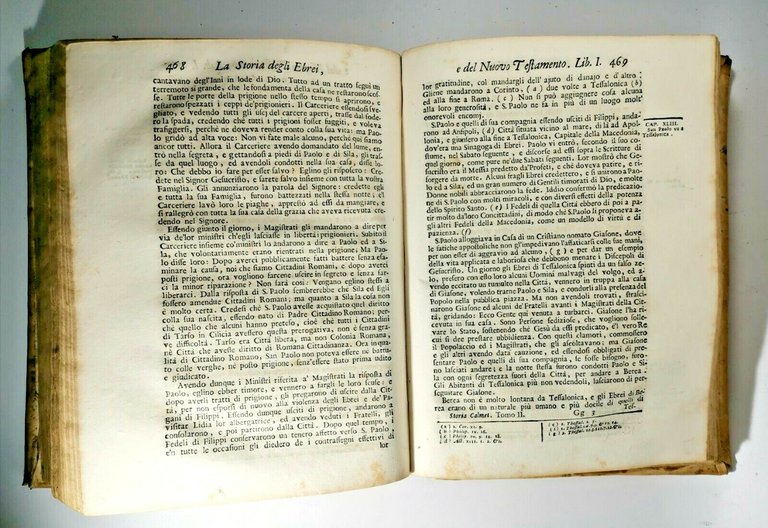 468 La Storia degli Ebrei,
cantavano degl'Inni in lode di Dio. Tutto ad un tratto seguì un
terremoto sì grande, che le fondamenta della casa ne restarono scos-
se. Tutte le porte della prigione nello stesso tempo si aprirono, e
restarono spezzati i ceppi de' prigionieri. Il Carceriere essendosi sve-
gliato, e vedendo tutti gli usci del carcere aperti, trasse dal fode-
ro la spada, credendo che tutti i prigioni fosser fuggiti, e voleva
traffiggersi, perchè ne doveva render conto colla sua vita: ma Pao-
lo gridò ad alta voce: Non vi fate male alcuno, perchè quì siamo
ancor tutti. Allora il Carceriere avendo domandato del lume, en-
trò nella segreta, e gettandosi a piedi di Paolo e di Sila, gli tras-
se da quel luogo, ed avendoli condotti nella sua casa, disse lo-
ro: Che debbo io fare per esser salvo? Eglino gli risposero: Cre-
dete nel Signor Gesucristo, e sarete salvo insieme con tutta la vostra
Famiglia. Gli annunziarono la parola del Signore: credette egli
e tutta la sua Famiglia, furono battezzati nella stessa notte, il
Carceriere lavò loro le piaghe, apprestò ad essi da mangiare, e
si rallegrò con tutta la sua casa della grazia che aveva ricevuta cre-
dendo nel Signore.
Essendo giunto il giorno, i Magistrati gli mandarono a dire per
via de' lor ministri ch'egli lasciasse in libertà i prigionieri. Subito il
Carceriere insieme co' ministri lo andarono a dire a Paolo ed a Si-
la, che volontariamente erano rientrati nella prigione. Ma Pao-
lo disse loro: Dopo averci pubblicamente fatti battere senza esa-
minare la causa, noi che siamo Cittadini Romani, e dopo averci
posti prigione, ora vogliono farcene uscire in segreto e senza far-
ci la minor riparazione? Non sarà così: Vengano eglino stessi a
liberarci. Dalla risposta di S. Paolo sembrerebbe che Sila ed Egli
fossero amendue Cittadini Romani; ma quanto a Sila la cosa non
è molto certa. Credesi che S. Paolo avesse quel diritto
colla sua nascita, essendo nato di Padre Cittadino Romano; per-
chè quello che alcuni hanno preteso, cioè che tutti i Cittadini
di Tarso in Cilicia avessero questa prerogativa, non è senza gra-
ve difficoltà. Tarso era Città libera, ma non Colonia Romana,
nè Città che avesse diritto di Romana Cittadinanza. Ora in qua-
lità di Cittadino Romano, San Paolo non poteva essere nè battu-
to colle verghe, nè posto prigione, senz'essere stato prima udito
e giudicato.
Avendo dunque i Ministri riferita a' Magistrati la risposta di
Paolo, eglino ebber timore, e vennero a fargli le loro scuse, e
dopo averli tratti di prigione, gli pregarono di uscire dalla Cit-
tà, per non esporsi di nuovo alla violenza degli Ebrei e de' Pa-
gani di Filippi. Essendo dunque usciti di prigione, andarono a
visitar Lidia lor albergatrice, ed avendo veduti i Fratelli, gli
consolarono, e poi partirono dalla Città. Dopo quel tempo, i
Fedeli di Filippi conservarono un tenero affetto verso S. Paolo,
e'n tutte le occasioni gli diedero de i contrassegni effettivi di
lor
e del Nuovo Testamento. Lib. I. 469
lor gratitudine, col mandargli dell'ajuto di danajo e d'altro;
Gliene mandarono a Corinto, (a) due volte a Tessalonica (b)
ed alla fine a Roma. (c) Non si può aggiugnere cosa alcuna
alla loro generosità, e S. Paolo ne fa in più di un luogo molt'
onorevoli encomj.
S. Paolo e quelli di sua compagnia essendo usciti di Filippi, andar-
ono ad Anfipoli, (d) Città situata vicino al mare, di là ad Apol-
lonia, e giunsero alla fine a Tessalonica, Capitale della Macedonia,
dov'era una Sinagoga di Ebrei. Paolo vi entrò, secondo il suo co-
stume, nel Sabato seguente, e discorse ad essi sopra le Scritture di
quel giorno, come pure ne' due Sabati seguenti. Lor mostrò che Ge-
sucristo era il Messia predetto da' Profeti, e che doveva patire, e ri-
sorgere da morte. Alcuni fra gli Ebrei credettero, e si unirono a Pao-
lo ed a Sila, ed un gran numero di Gentili timorati di Dio, e molte
Donne nobili abbracciarono la fede. Iddio confermò la predicazio-
ne di S. Paolo con molti miracoli, e con diversi effetti della potenza
dello Spirito Santo. (e) I Fedeli di quella Città ebbero di poi a pa-
tir molto da' loro Concittadini, di modo che S. Paolo li proponeva a-
gli altri Fedeli della Macedonia, come un modello di virtù e di
pazienza. (f)
CAP. XLIII.
San Paolo va a
Tessalonica.
S. Paolo alloggiava in Casa di un Cristiano nomato Giasone, dove
le fatiche appostoliche non gl'impedivano l'affaticarsi colle sue mani,
per non esser di aggravio ad alcuno; (g) e quì dar un esempio
della vita applicata e laboriosa che debbono menare i Discepoli di
Gesucristo. Un giorno gli Ebrei di Tessalonica spinti da un falso ze-
lo, presero con esso loro alcuni Uomini malvagi del volgo, ed a-
vendo eccitato un tumulto nella Città, vennero in truppa alla casa
di Giasone, volendo trarne Paolo e Sila, e condurli alla presenza del
Popolo nella pubblica piazza. Ma non avendoli trovati, strasci-
narono Giasone ed alcuni de' Fratelli avanti i Magistrati della Cit-
tà, gridando: Ecco Gente quì venuta a turbarci. Giasone l'ha ri-
cevuta in sua casa. Sono Persone sediziose, che vogliono solle-
vare lo Stato, sostenendo che Gesù da essi predicato, è'l vero Re
cui si dee prestare ubbidienza. Con questi clamori, commossero
il Popolaccio ed i Magistrati, che gli ascoltavano: ma Giasone
e gli altri avendo data cauzione, ed essendosi obbligati di pre-
sentare Paolo e quelli di sua compagnia, se fosse bisogno, furo-
no lasciati andare; e la notte stessa furono condotti Paolo e Si-
la con ogni segretezza fuori della Città, per andare a Berea.
Gli Abitanti di Tessalonica più non vedendoli, lasciarono di per-
seguitare Giasone.
Berea non è molto lontana da Tessalonica, e gli Ebrei di Be-
rea erano di un naturale più umano e più docile di quelli di
Storia Calmet. Tomo II. Gg 3 Tes-
(a) 2. Cor. xi. 9.
(b) Philip. iv. 16.
(c) Philip. iv. 18.
(d) Act. XVII. 1. 2. &c.